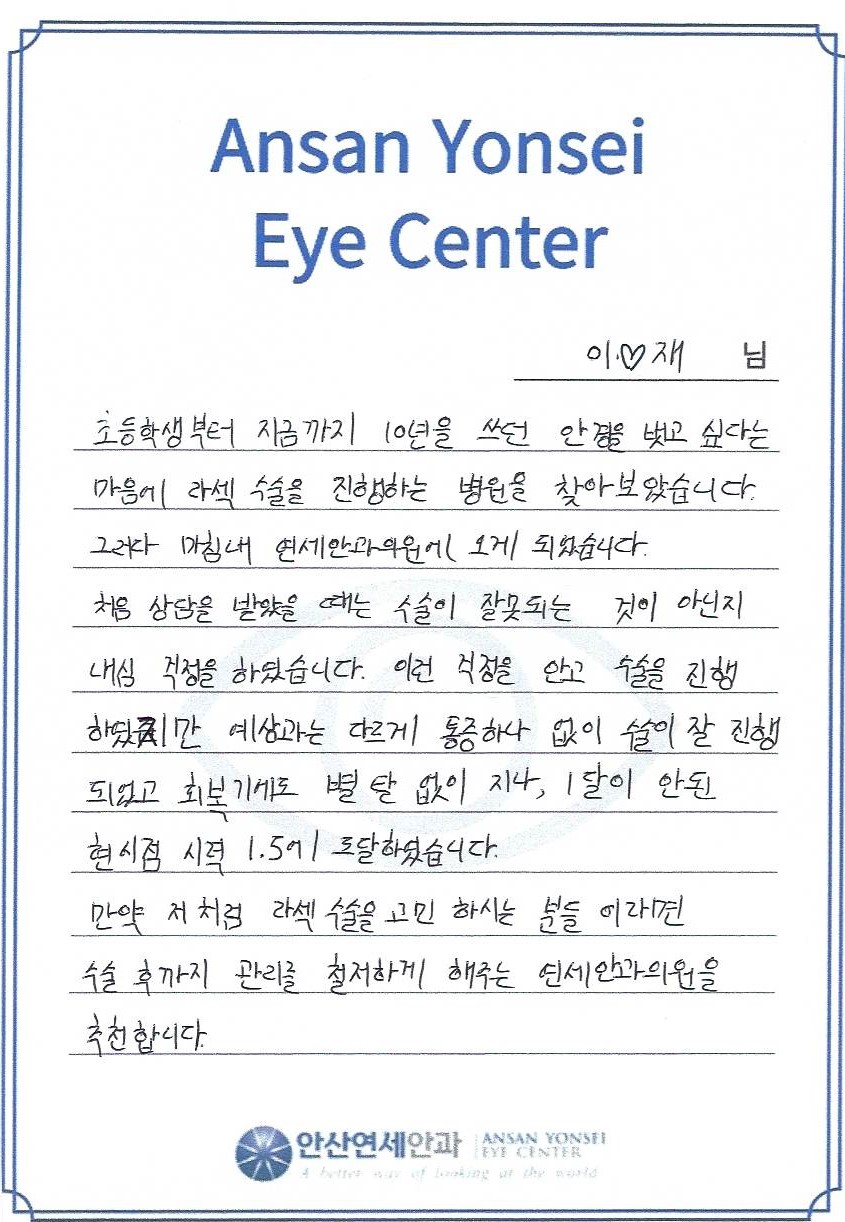 Ansan Yonsei
Eye Center
이♡재 님
초등학생부터 지금까지 10년을 쓰던 안경을 벗고 싶다는
마음에 라섹 수술을 진행하는 병원을 찾아보았습니다.
그러다 마침내 연세안과의원에 오게 되었습니다.
처음 상담을 받았을 때는 수술이 잘못되는 것이 아닌지
내심 걱정을 하였습니다. 이런 걱정을 안고 수술을 진행
하였지만 예상과는 다르게 통증하나 없이 수술이 잘 진행
되었고 회복기에도 별 탈 없이 지나, 1달이 안된
현시점 시력 1.5에 도달하였습니다.
만약 저처럼 라섹 수술을 고민 하시는 분들 이라면
수술 후까지 관리를 철저하게 해주는 연세안과의원을
추천합니다.
안산연세안과 ANSAN YONSEI
EYE CENTER
A better way of looking at the world